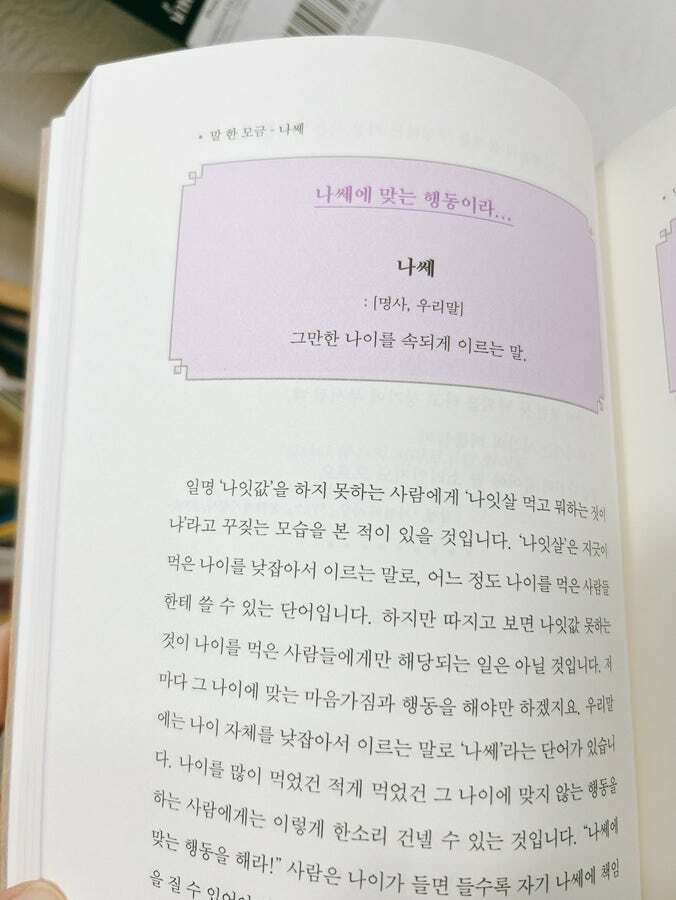 • 말 한 모금 - 나쎄
나쎄에 맞는 행동이라...
나쎄
: [명사, 우리말]
그만한 나이를 속되게 이르는 말.
일명 ‘나잇값’을 하지 못하는 사람에게 ‘나잇살 먹고 뭐하는 짓이
냐’라고 꾸짖는 모습을 본 적이 있을 것입니다. ‘나잇살’은 지긋이
먹은 나이를 낮잡아서 이르는 말로, 어느 정도 나이를 먹은 사람들
한테 쓸 수 있는 단어입니다. 하지만 따지고 보면 나잇값 못하는
것이 나이를 먹은 사람들에게만 해당되는 일은 아닐 것입니다. 저
마다 그 나이에 맞는 마음가짐과 행동을 해야만 하겠지요. 우리말
에는 나이 자체를 낮잡아서 이르는 말로 ‘나쎄’라는 단어가 있습니
다. 나이를 많이 먹었건 적게 먹었건 그 나이에 맞지 않는 행동을
하는 사람에게는 이렇게 한소리 건넬 수 있는 것입니다. “나쎄에
맞는 행동을 해라!” 사람은 나이가 들면 들수록 자기 나쎄에 책임
을 질 수 있어야